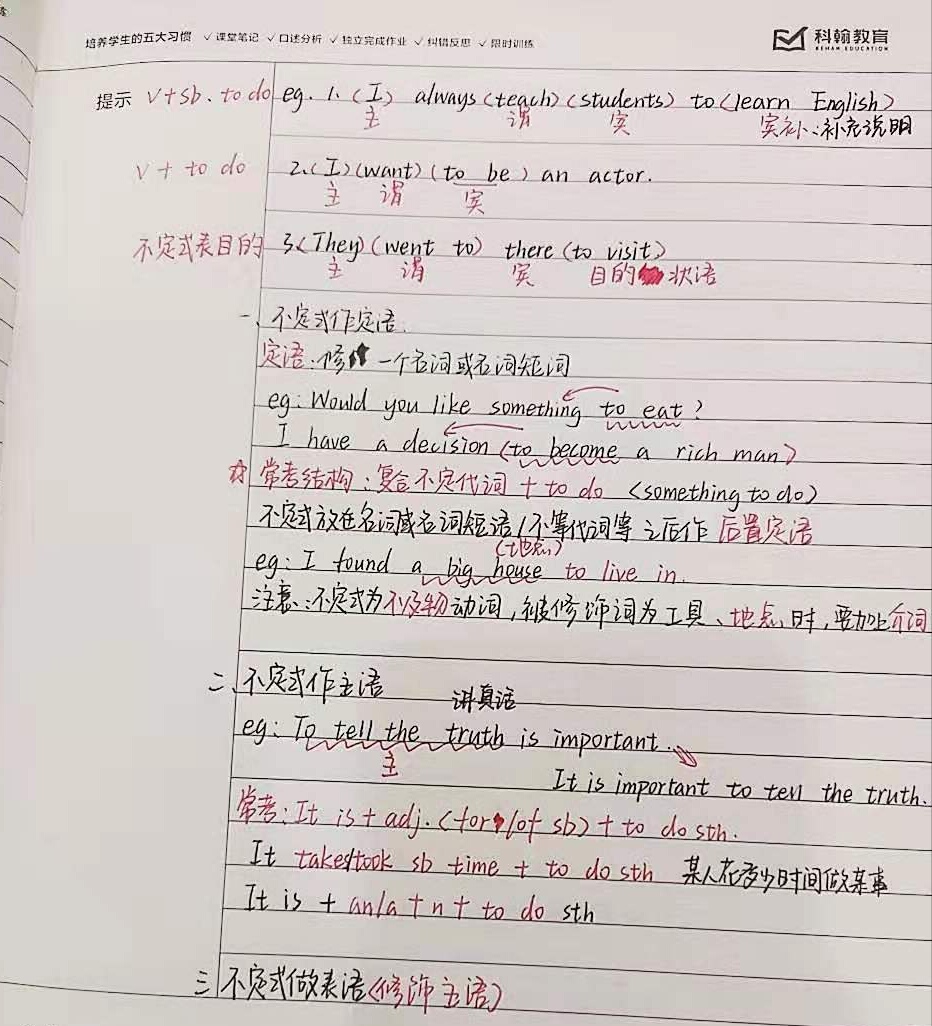 培养学生的五大习惯 ✓课堂笔记 ✓口述分析 ✓独立完成作业 ✓纠错反思 ✓限时训练
科翰教育
KEHAN EDUCATION
提示 V+sb. to do eg. 1.(I) always (teach) (students) to (learn English)
主 谓 宾 宾补:补充说明
V + to do 2.(I)(want)(to be) an actor.
主 谓 宾
不定式表目的 3.(They)(went to) there (to visit)
主 谓 宾 目的 状语
一、不定式作定语.
定语:修 一个名词或名词短词
eg: Would you like something to eat ?
I have a decision (to become a rich man)
☆常考结构:复合不定代词 + to do (something to do)
不定式放在名词或名词短语/不等代词等之后作 后置定语
(地点)
eg: I found a big house to live in.
注意:不定式为不及物动词,被修饰词为工具、地点、时,要加上介词
二、不定式作主语 讲真话
eg: To tell the truth is important.
主
It is important to tell the truth.
常考:It is + adj. (for /of sb) + to do sth.
It takes/took sb time + to do sth 某人花多少时间做某事
It is + an/a + n + to do sth
三 不定式做表语(修饰主语)